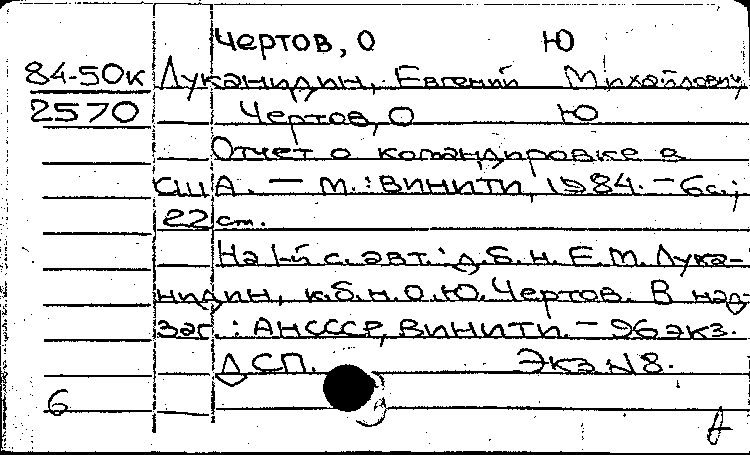 Чертов, О Ю
84-50к Луканидин, Евгений Михайлович,
2570 Чертов, О Ю
Отчет о командировке в
США. — М.: ВИНИТИ, 1984. — 6с.;
22 см.
На 1-й с. авт.: д.б.н. Е.М. Лука-
нидин, к.б.н. О.Ю. Чертов. В над-
заг.: АН СССР, ВИНИТИ. — 96 экз.
ДСП. Экз N 8.
6